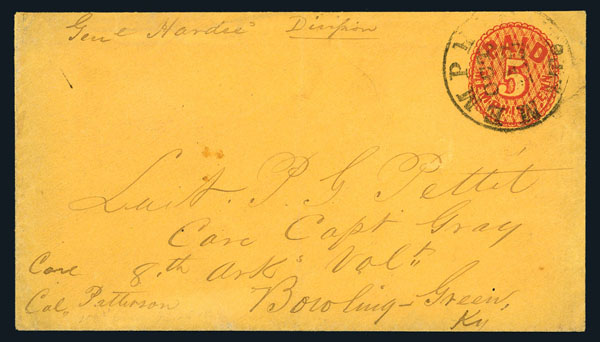 Genl Hardie's Division
PAID
5
MEMPH
Lieut. P. G. Pettit
Care Capt Gray
8th Arks Volts
Care
Col. Patterson
Bowling-Green,
Ky